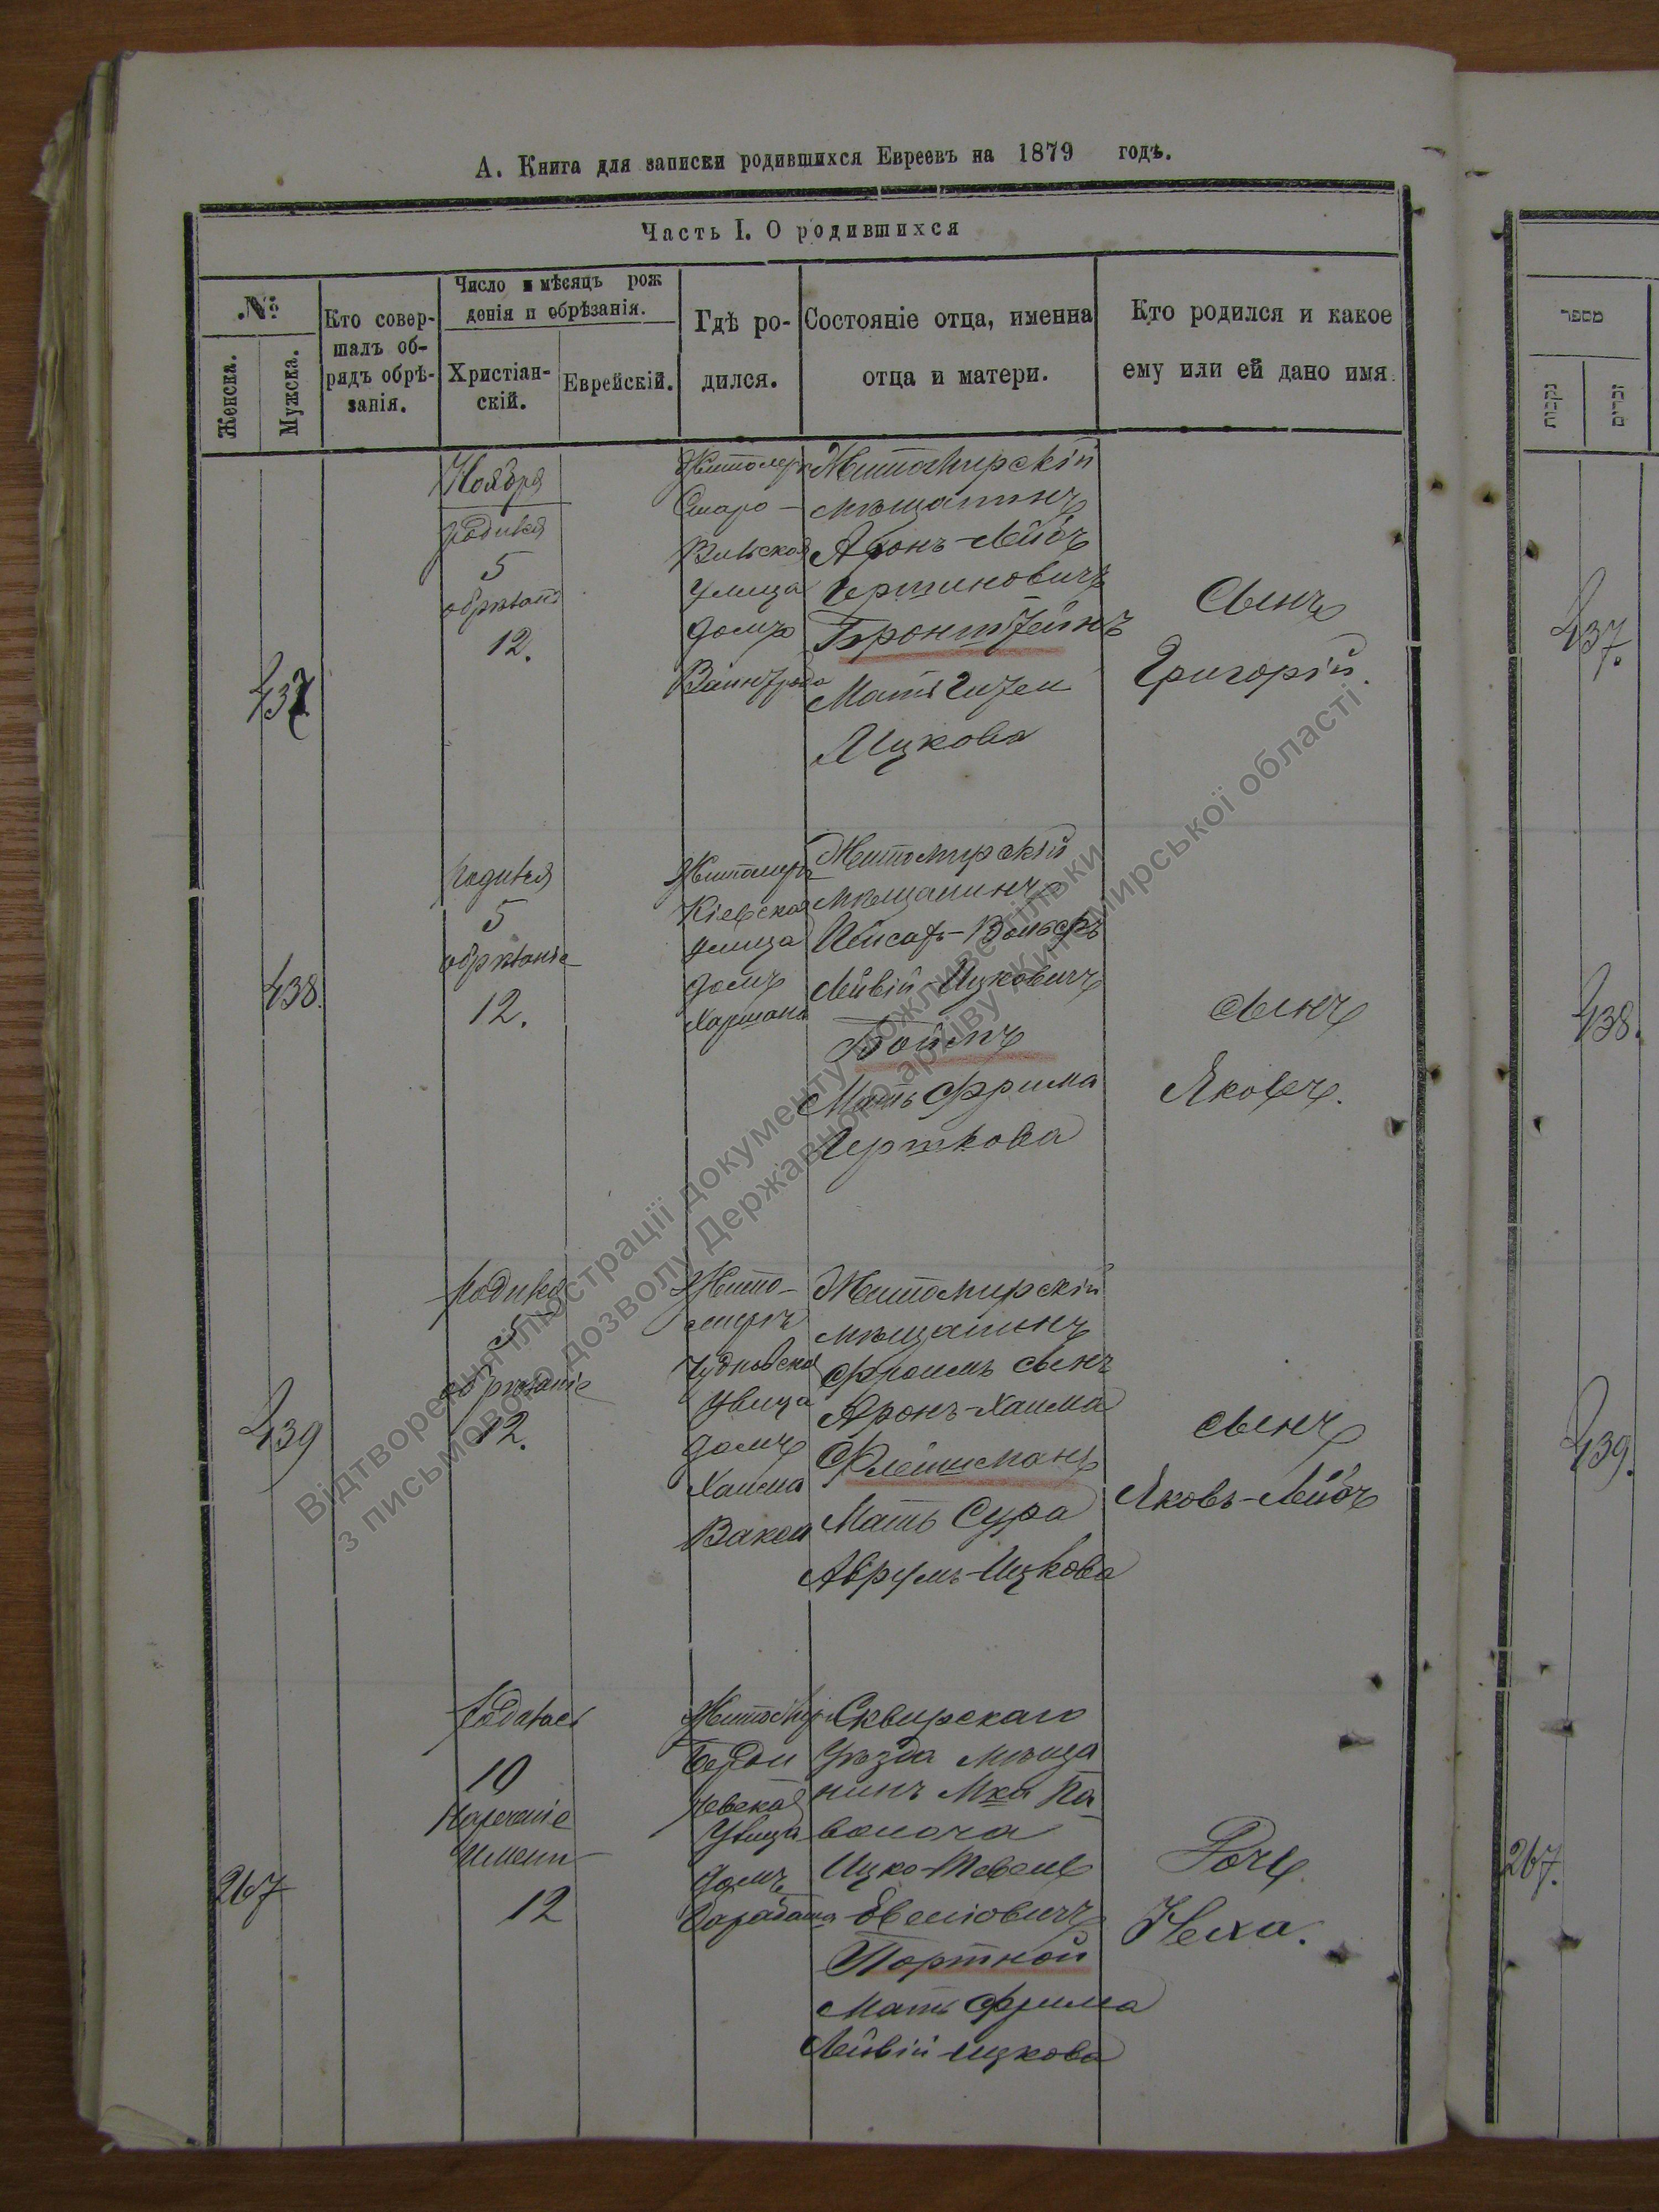 А. Книга для записки родившихся Евреевъ на 1879 годъ.
Часть I. О родившихся
№
Женска.
Мужска.
Кто совер-
шалъ об-
рядъ обрѣ-
занія.
Число и мѣсяцъ рож
денія и обрѣзанія.
Христіан-
скій.
Еврейскій.
Гдѣ ро-
дился.
Состояніе отца, именна
отца и матери.
Кто родился и какое
ему или ей дано имя.
437
Ноября
родился
5
12.
Житомиръ
Старо-
Вильская
улица
домъ
Житомирскій
мѣщанинъ
Аронъ-Лейбъ
Бронштейнъ
Мать
Ицкова
Сынъ
Григорій.
438.
родился
5
обрѣзаніе
12.
Житомиръ
Кіевская
улица
домъ
Житомирскій
мѣщанинъ
Пейсахъ-Вольфъ
Лейвій-Ицковичъ
Боймъ
Мать Фрима
Гершкова
сынъ
Яковъ.
439
родился
5
обрѣзаніе
12.
Жито-
миръ
Чудновская
улица
домъ
Хаима
Житомирскій
мѣщанинъ
Фроимъ сынъ
Аронъ-Хаима
Флейшманъ
Мать Сура
Аврумъ-Ицкова
сынъ
Яковъ-Лейбъ
267
родилась
10
Нареченіе
имени
12
Житомир
Берди
чевская
улица
домъ
Сквирскаго
уѣзда мѣща
нинъ Мка Па
волоча
Портной
Мать Фрима
Лейвій-Ицкова
Дочь
Неха.
מספר
נקבות
זכרים
437.
438.
439.
267.
Відтворення ілюстрації документу можливе тільки
з письмового дозволу Державного архіву Житомирської області